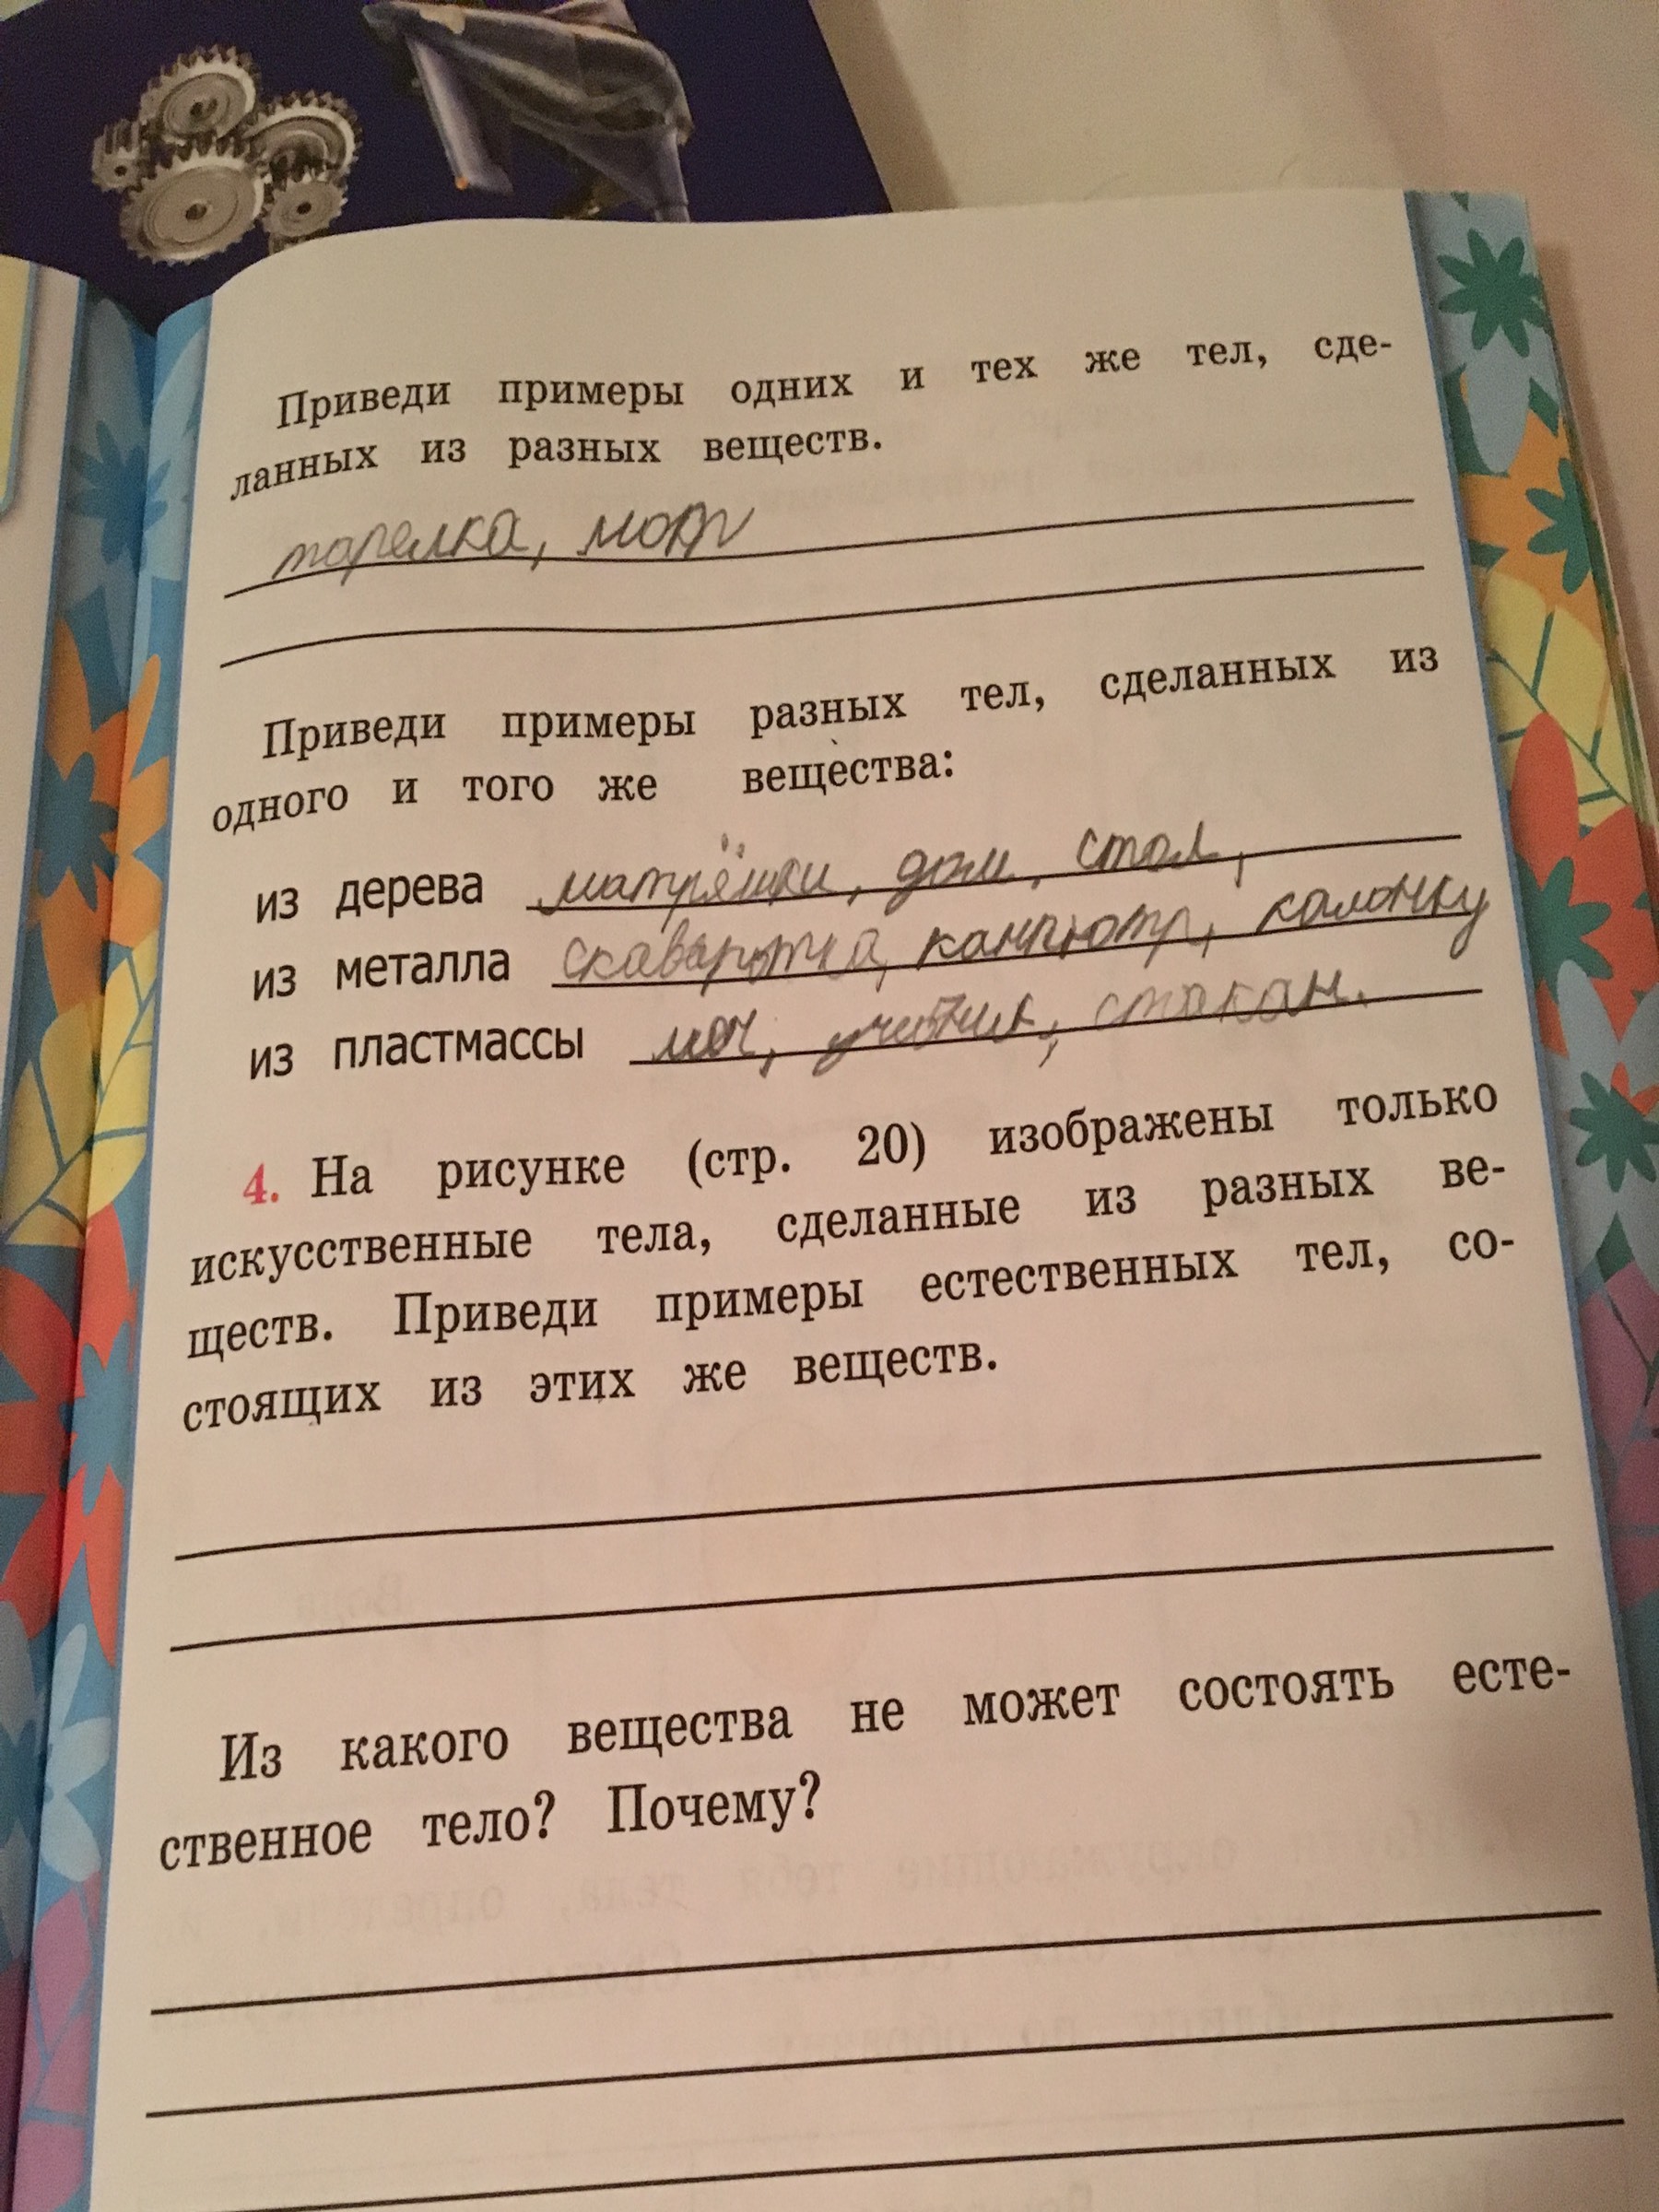 Приведи примеры одних и тех же тел, сде-
ланных из разных веществ.
тарелка,
Приведи примеры разных тел, сделанных из
одного и того же вещества:
из дерева матрёшки, дом, стол,
из металла скаваротка, кампютр, калонку
из пластмассы меч, стакан.
4. На рисунке (стр. 20) изображены только
искусственные тела, сделанные из разных ве-
ществ. Приведи примеры естественных тел, со-
стоящих из этих же веществ.
Из какого вещества не может состоять есте-
ственное тело? Почему?